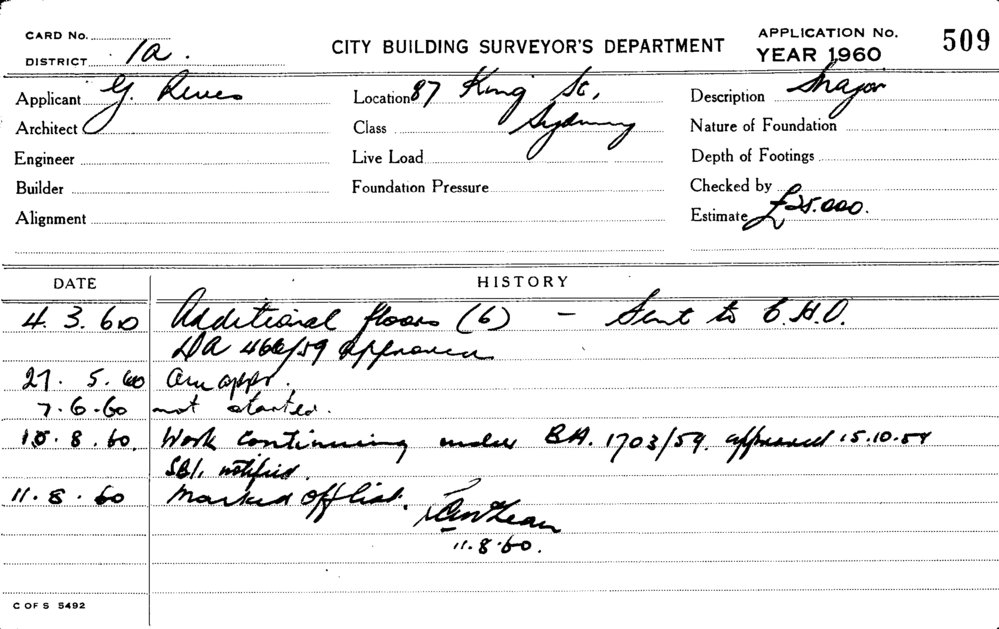 CARD No. CITY BUILDING SURVEYOR'S DEPARTMENT APPLICATION No. 509
DISTRICT 1a. YEAR 1960
Applicant G. Location 87 King St, Description Major
Architect Class Sydney Nature of Foundation
Engineer Live Load Depth of Footings
Builder Foundation Pressure Checked by
Alignment Estimate £25.000.
DATE HISTORY
4.3.60 Additional floors (6) - Sent to C.H.O.
DA 466/59 approved
27.5.60 appr.
7.6.60 not started.
10.8.60 Work continuing under BA. 1703/59. approved 15.10.59
SBI. notified.
11.8.60 Marked off list.
11.8.60.
C OF S 5492